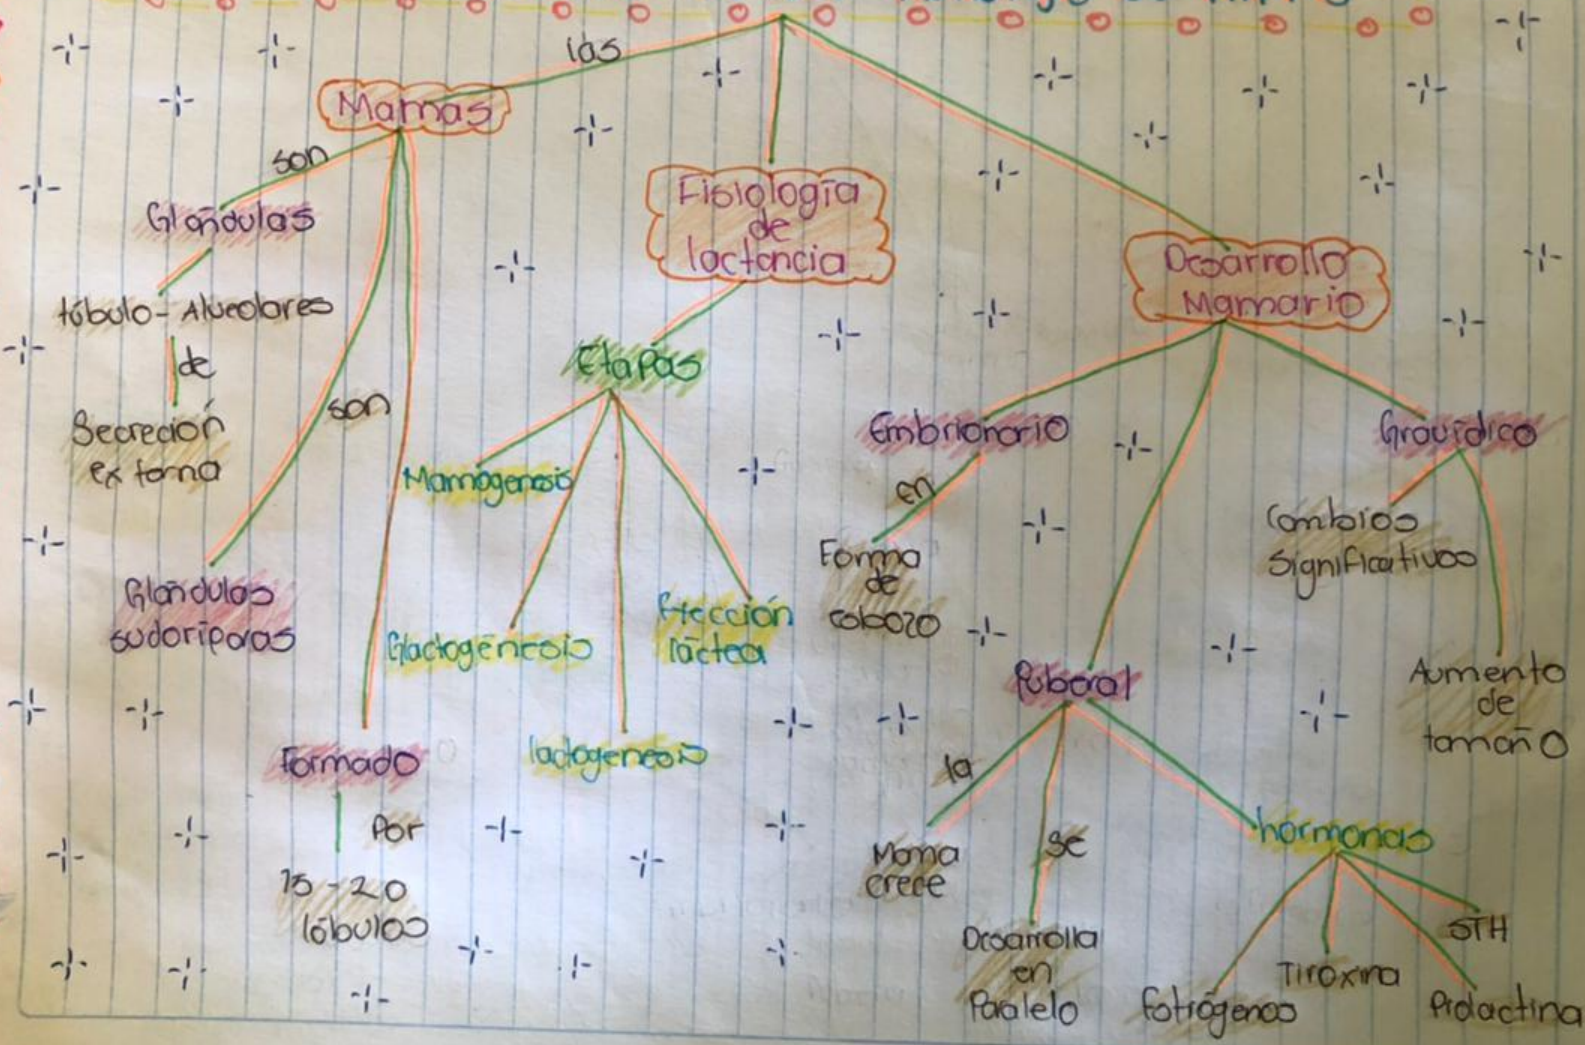 las
Mamas
son
Glándulas
túbulo - Alveolares
de
Secreción
externa
son
Glándulas
sudoríparas
Formado
Por
15 - 20
lóbulos
Fisiología
de
lactancia
Etapas
Mamogenesis
Glactogénesis
lactogenesis
Eyección
láctea
Desarrollo
Mamario
Embrionario
en
Forma
de
esbozo
Puberal
la
Mama
crece
se
Desarrolla
en
Paralelo
hormonas
Estrógenos
Tiroxina
Prolactina
STH
Gravídico
Cambios
Significativos
Aumento
de
tamaño